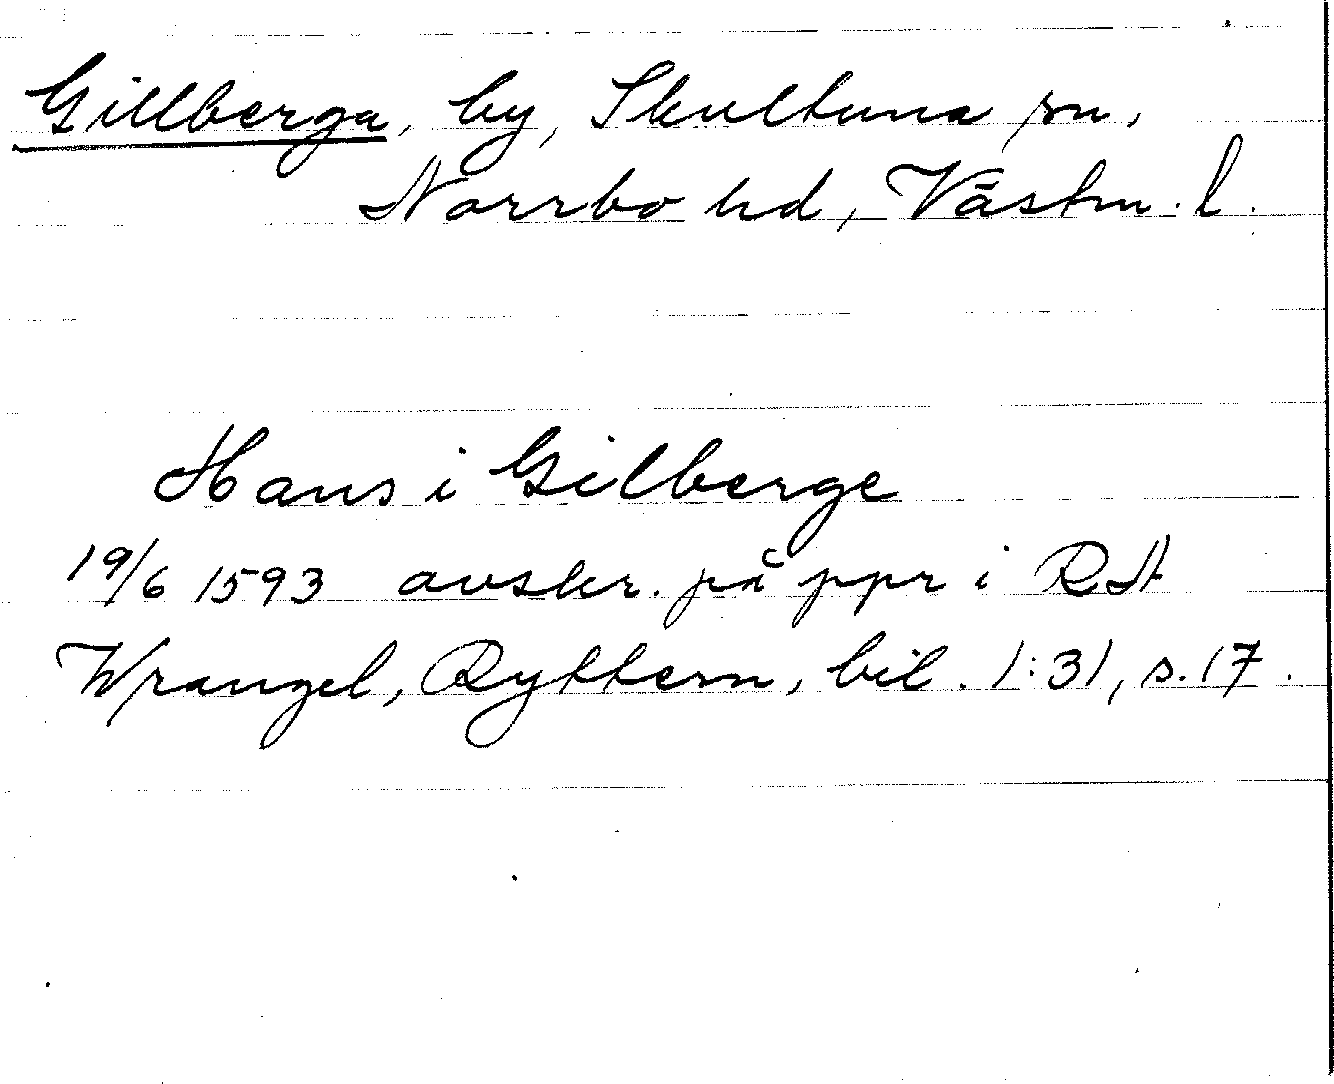 Gillberga, by, Skultuna sn,
Norrbo hd, Västm. l.
Hans i Gilberge
19/6 1593 avskr. på ppr i RA
Wrangel, Ryttern, bil. 1:31, s. 17.